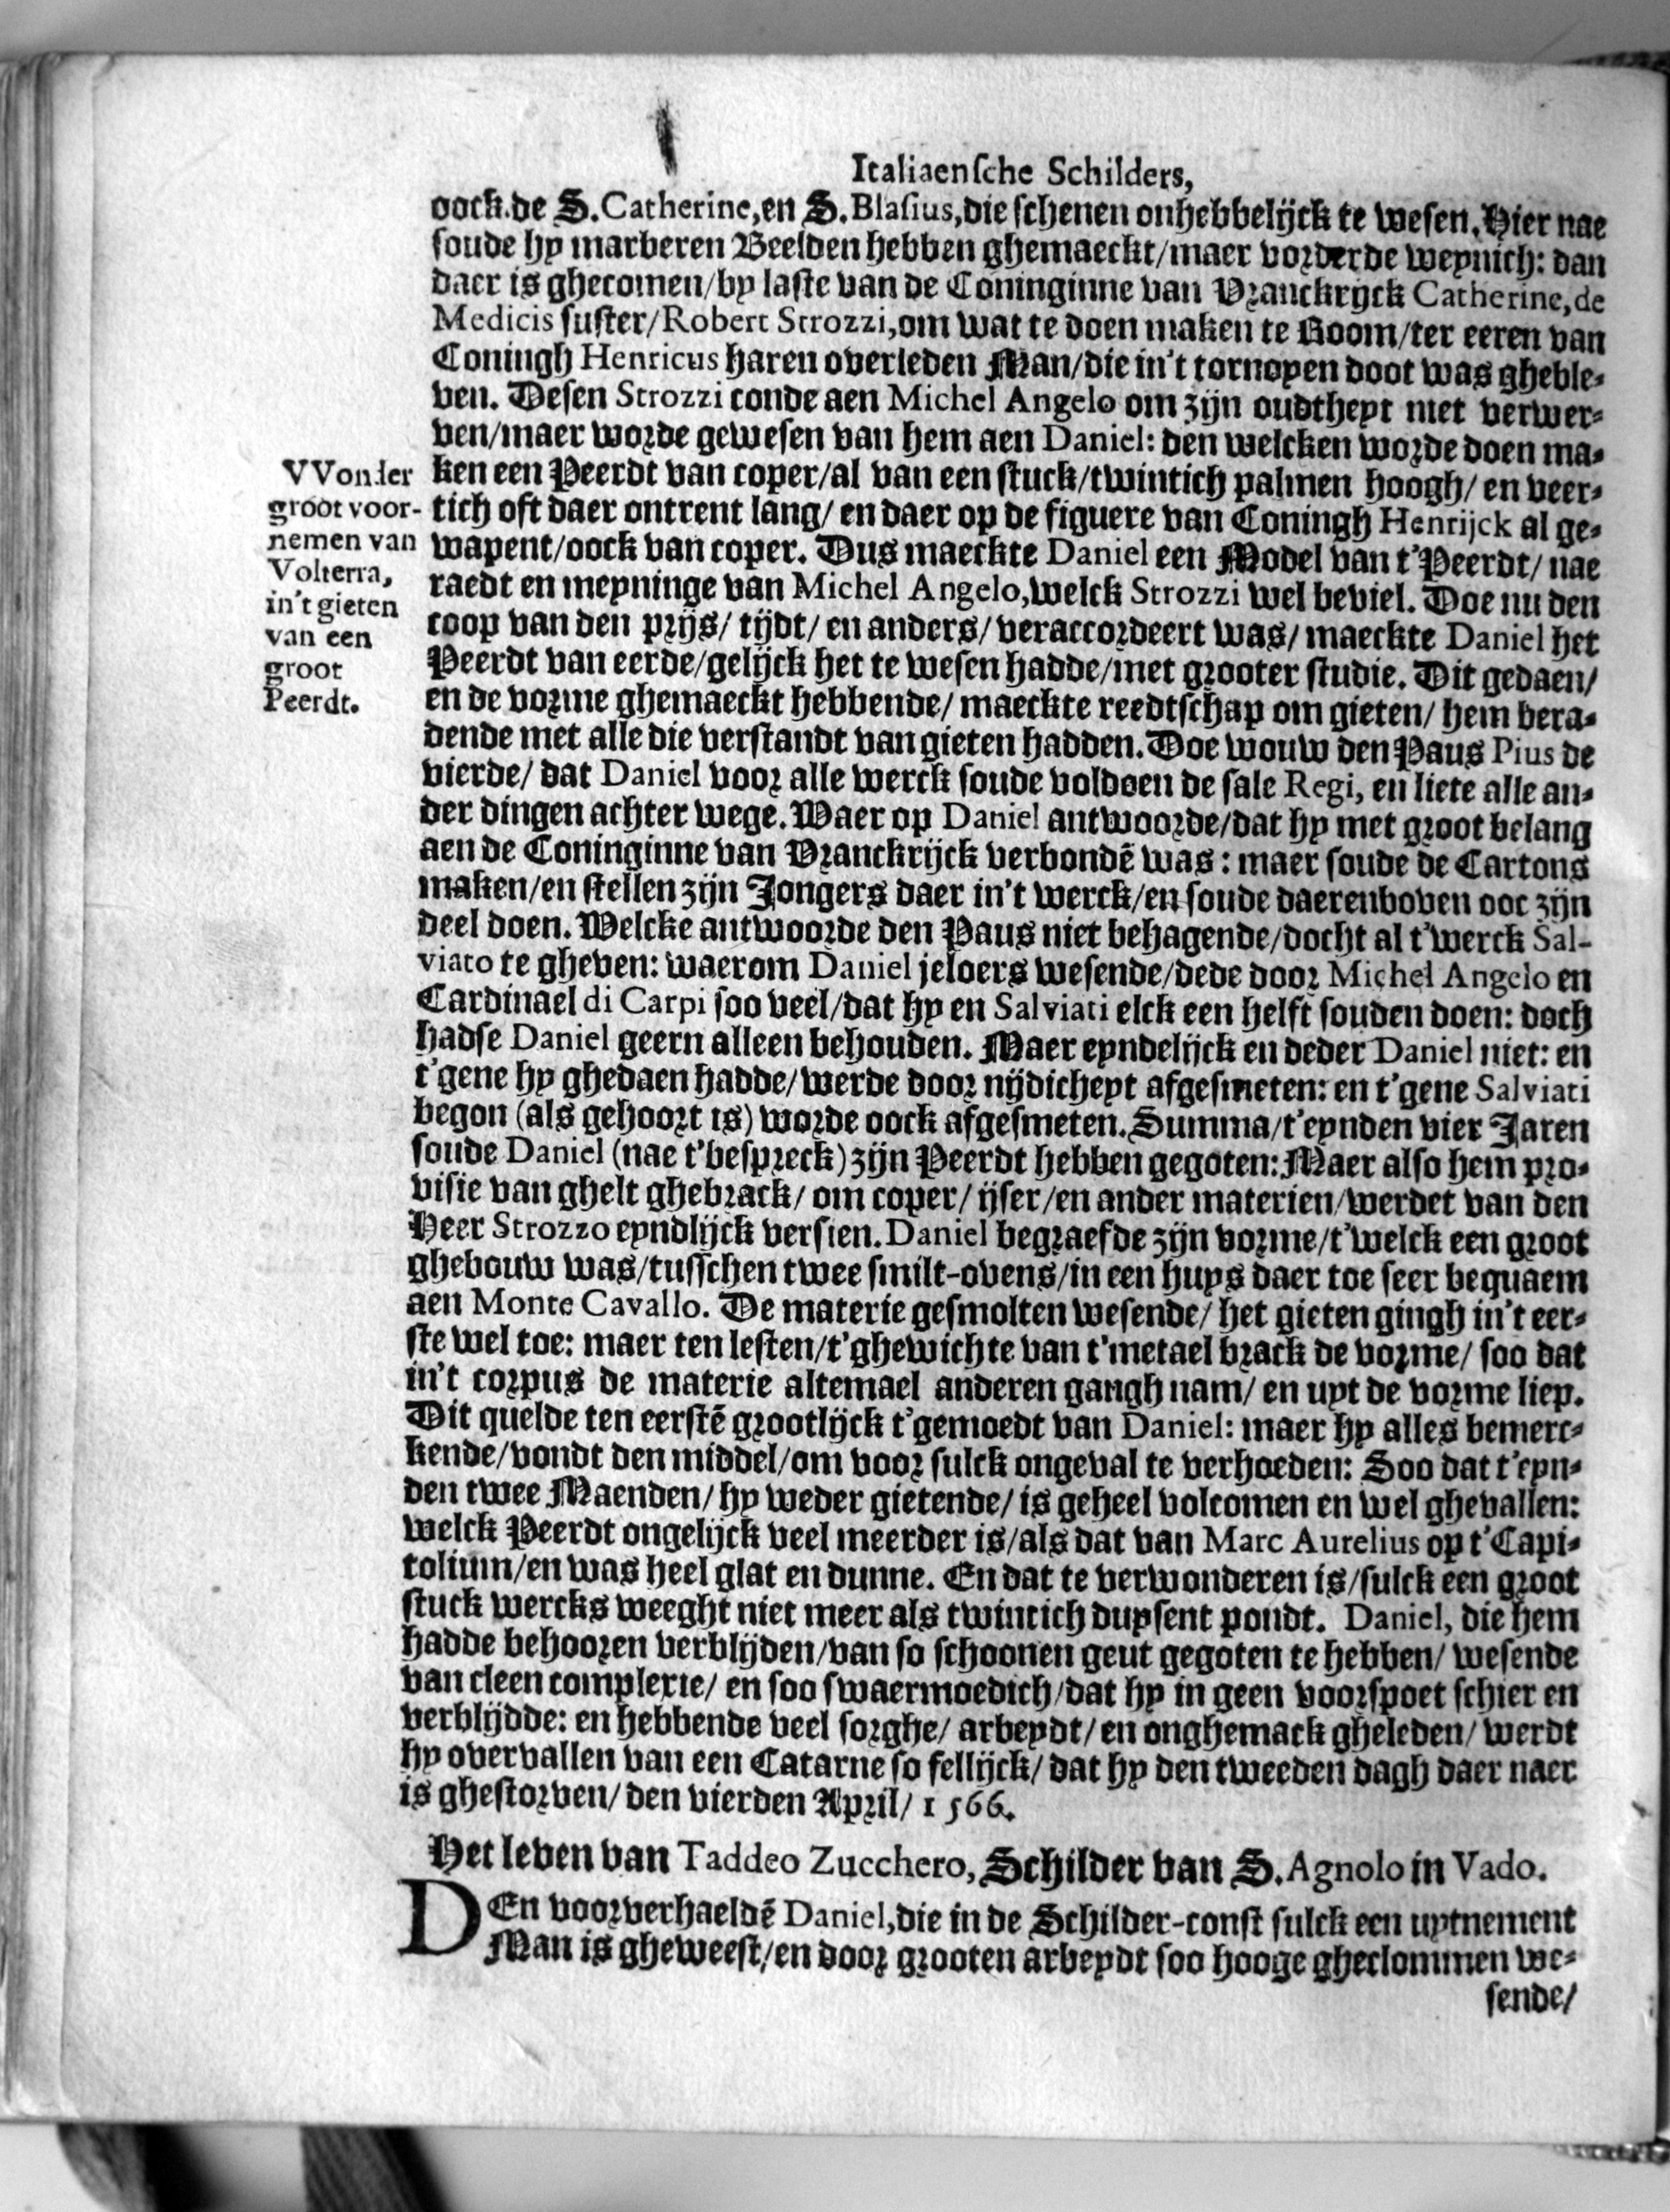 Italiaensche Schilders,
oock de S. Catherine, en S. Blasius, die schenen onhebbelijck te wesen. Hier nae
soude hy marberen Beelden hebben ghemaeckt/maer vorderde weynich: dan
daer is ghecomen/by laste van de Coninginne van Vranckrijck Catherine, de
Medicis suster/Robert Strozzi, om wat te doen maken te Room/ter eeren van
Coningh Henricus haren overleden Man/die in't tornoyen doot was gheble-
ven. Desen Strozzi conde aen Michel Angelo om zijn oudtheyt niet verwer-
ven/maer worde gewesen van hem aen Daniel: den welcken worde doen ma-
ken een Peerdt van coper/al van een stuck/twintich palmen hoogh/ en veer-
tich oft daer ontrent lang/ en daer op de figuere van Coningh Henrijck al ge-
wapent/oock van coper. Dus maeckte Daniel een Model van t'Peerdt/ nae
raedt en meyninge van Michel Angelo, welck Strozzi wel beviel. Doe nu den
coop van den prijs/ tijdt/ en anders/ veraccordeert was/ maeckte Daniel het
Peerdt van eerde/gelijck het te wesen hadde/met grooter studie. Dit gedaen/
en de vorme ghemaeckt hebbende/ maeckte reedtschap om gieten/ hem bera-
dende met alle die verstandt van gieten hadden. Doe wouw den Paus Pius de
vierde/ dat Daniel voor alle werck soude voldoen de sale Regi, en liete alle an-
der dingen achter wege. Waer op Daniel antwoorde/dat hy met groot belang
aen de Coninginne van Vranckrijck verbondẽ was: maer soude de Cartons
maken/en stellen zijn Jongers daer in't werck/en soude daerenboven ooc zijn
deel doen. Welcke antwoorde den Paus niet behagende/docht al t'werck Sal-
viato te gheven: waerom Daniel jeloers wesende/dede door Michel Angelo en
Cardinael di Carpi soo veel/dat hy en Salviati elck een helft souden doen: doch
hadse Daniel geern alleen behouden. Maer eyndelijck en deder Daniel niet: en
t'gene hy ghedaen hadde/werde door nijdicheyt afgesmeten: en t'gene Salviati
begon (als gehoort is) worde oock afgesmeten. Summa/t'eynden vier Jaren
soude Daniel (nae t'bespreck) zijn Peerdt hebben gegoten: Maer also hem pro-
visie van ghelt ghebrack/ om coper/ ijser/en ander materien/werdet van den
Heer Strozzo eyndlijck versien. Daniel begraefde zijn vorme/t'welck een groot
ghebouw was/tusschen twee smilt-ovens/in een huys daer toe seer bequaem
aen Monte Cavallo. De materie gesmolten wesende/ het gieten gingh in't eer-
ste wel toe: maer ten lesten/t'ghewichte van t'metael brack de vorme/ soo dat
in't corpus de materie altemael anderen gangh nam/ en uyt de vorme liep.
Dit quelde ten eerstẽ grootlijck t'gemoedt van Daniel: maer hy alles bemerc-
kende/vondt den middel/om voor sulck ongeval te verhoeden: Soo dat t'eyn-
den twee Maenden/ hy weder gietende/ is geheel volcomen en wel ghevallen:
welck Peerdt ongelijck veel meerder is/als dat van Marc Aurelius op t'Capi-
tolium/en was heel glat en dunne. En dat te verwonderen is/sulck een groot
stuck wercks weeght niet meer als twintich duysent pondt. Daniel, die hem
hadde behooren verblijden/van so schoonen geut gegoten te hebben/ wesende
van cleen complexie/ en soo swaermoedich/dat hy in geen voorspoet schier en
verblijdde: en hebbende veel sorghe/ arbeydt/ en onghemack gheleden/ werdt
hy overvallen van een Catarne so fellijck/ dat hy den tweeden dagh daer naer
is ghestorven/ den vierden April/ 1566.
VVonder
groot voor-
nemen van
Volterra,
in't gieten
van een
groot
Peerdt.
Het leven van Taddeo Zucchero, Schilder van S. Agnolo in Vado.
DEn voorverhaeldẽ Daniel, die in de Schilder-const sulck een uytnement
Man is gheweest/en door grooten arbeydt soo hooge gheclommen we-
sende/